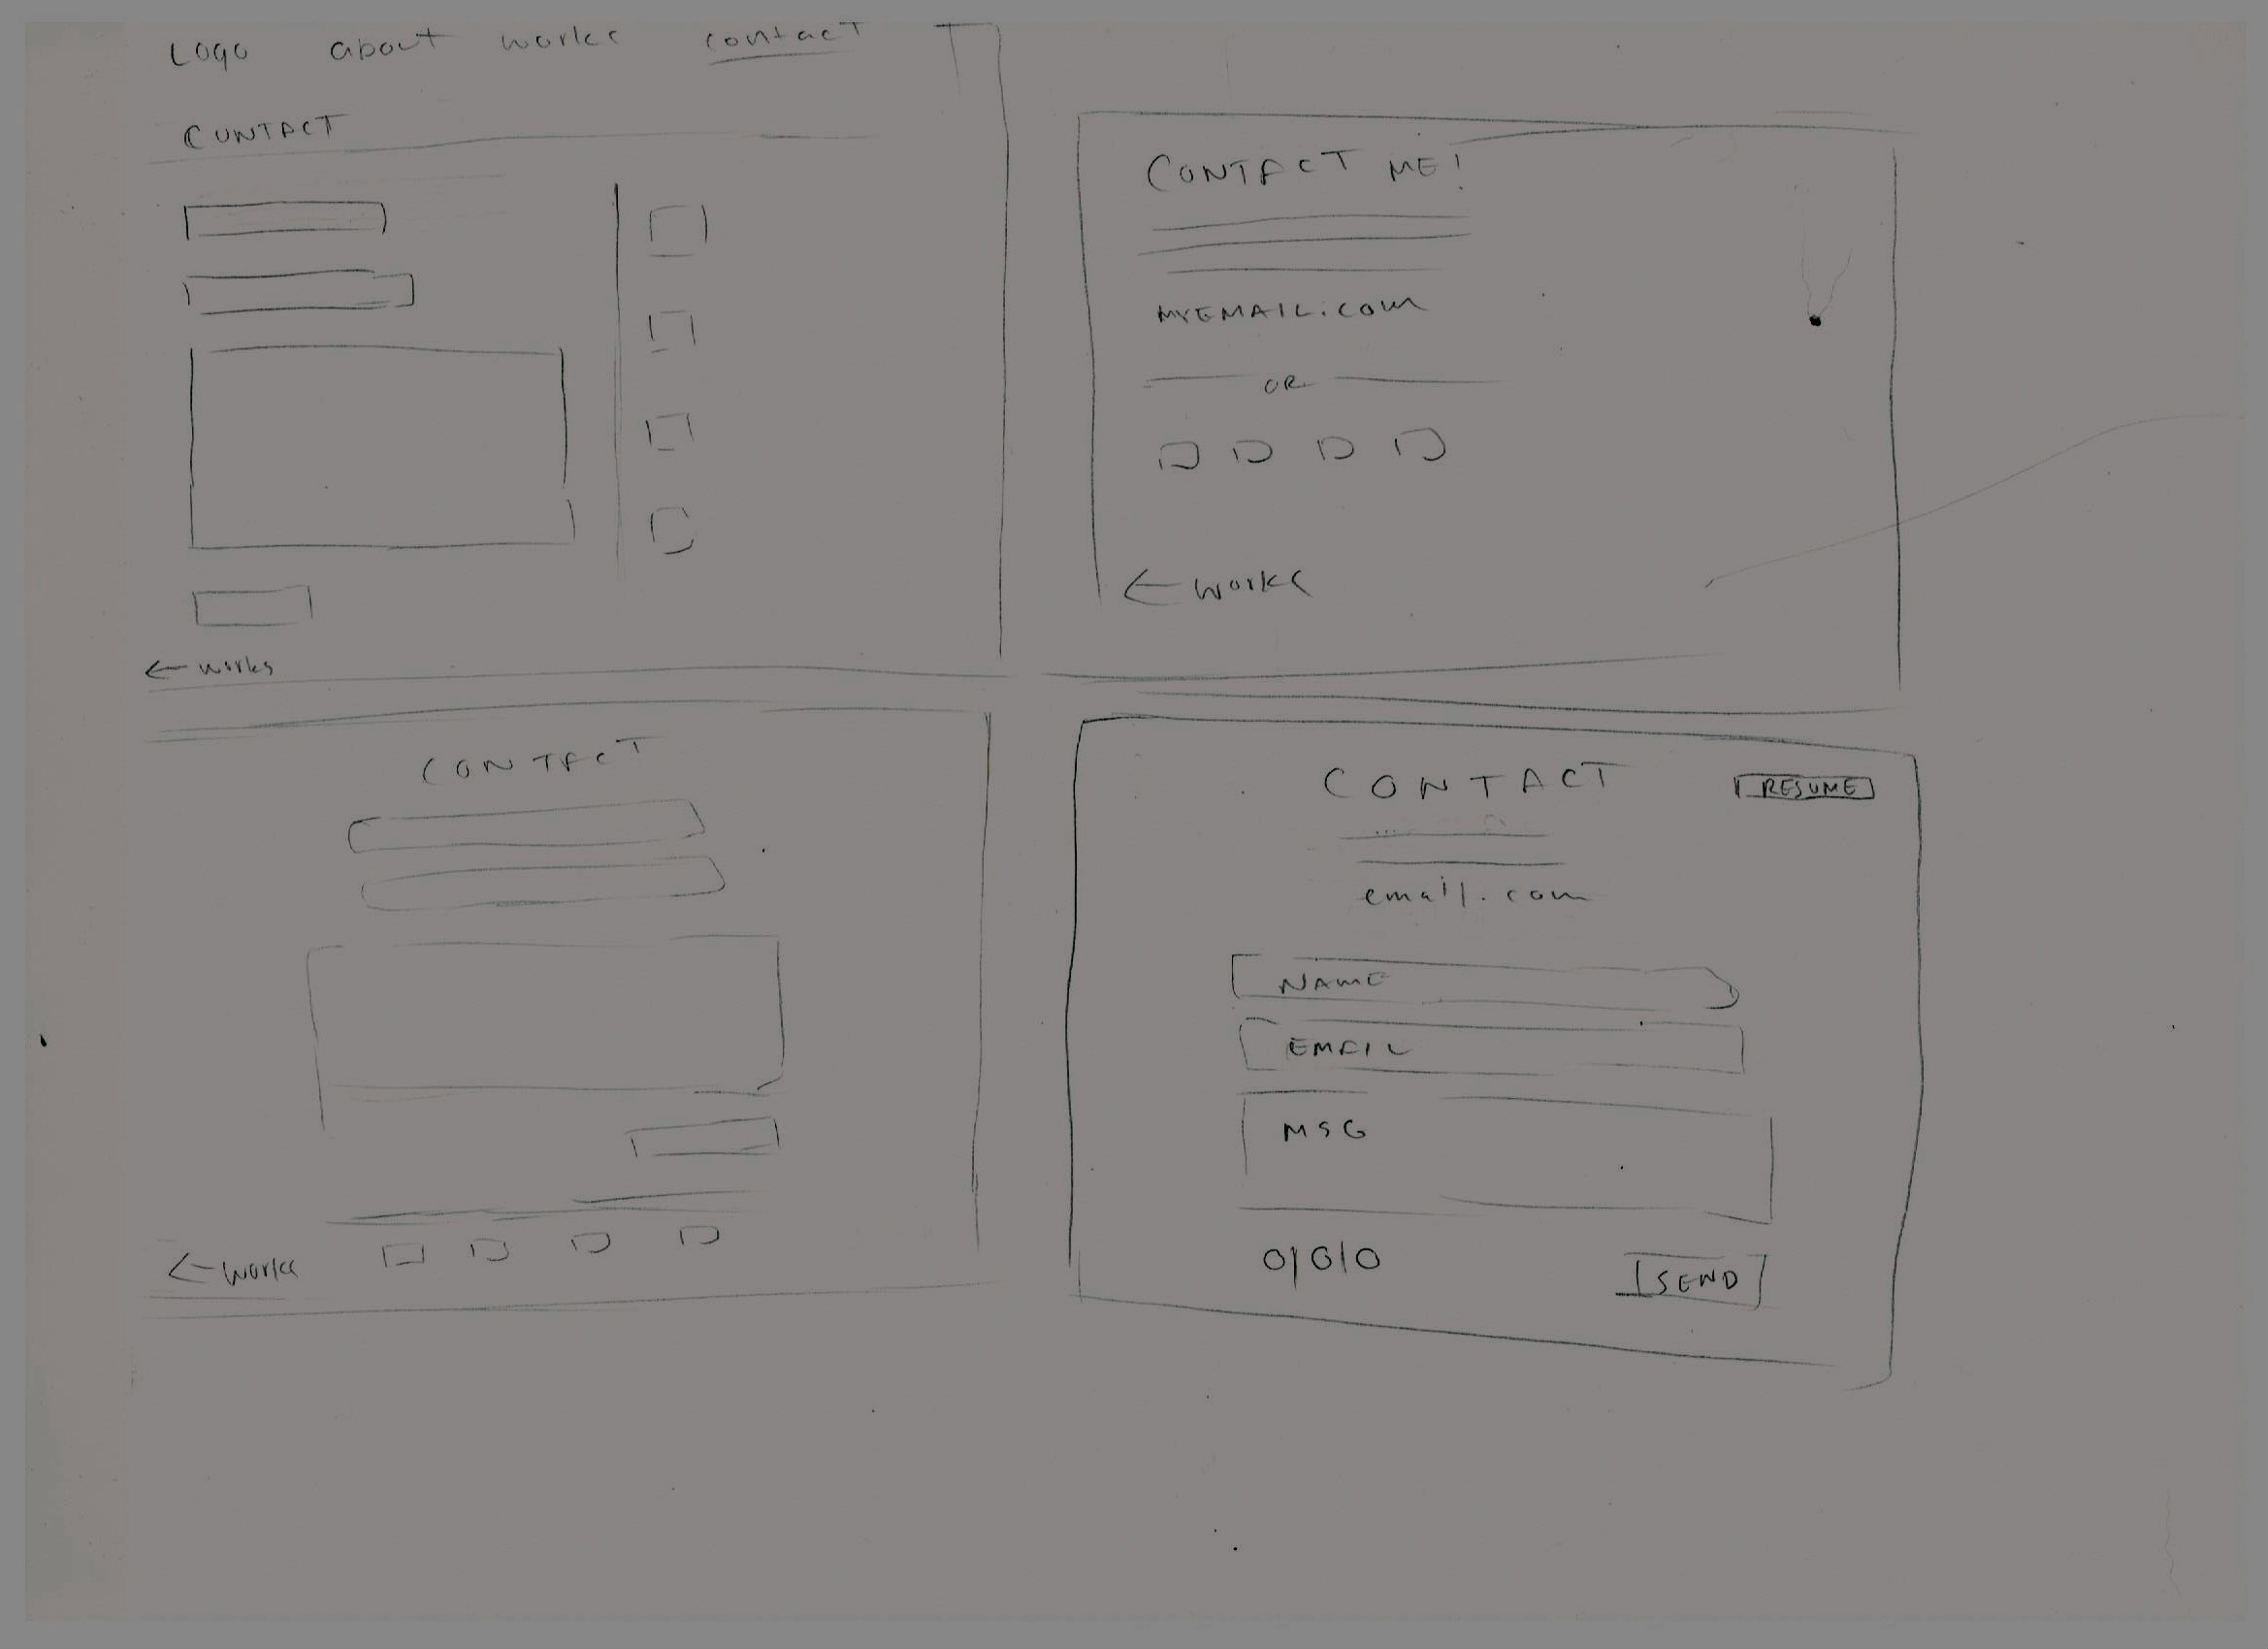 Logo about works contact
CONTACT
← works
CONTACT ME!
MYEMAIL.COM
OR
← works
CONTACT
← works
CONTACT
RESUME
email.com
NAME
EMAIL
MSG
O|O|O
SEND